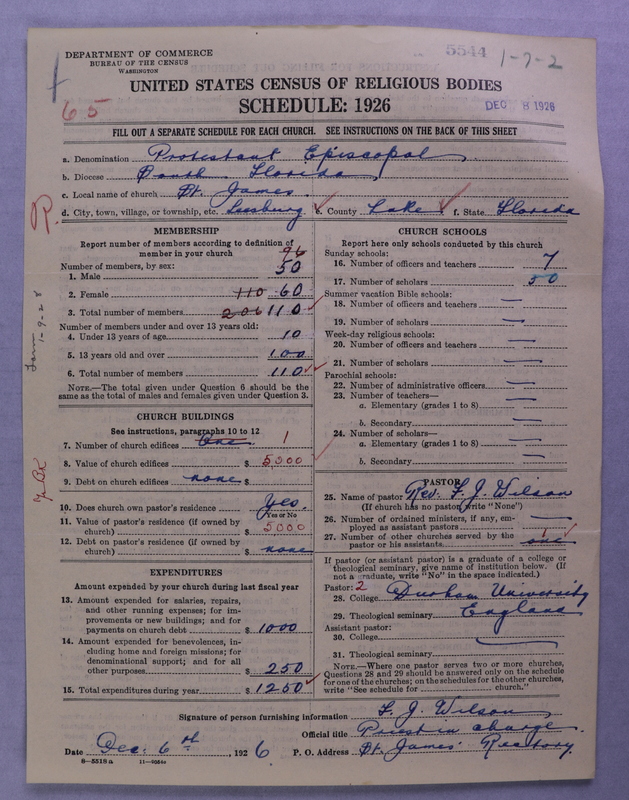 DEPARTMENT OF COMMERCE
BUREAU OF THE CENSUS
WASHINGTON
5544 1-7-2
UNITED STATES CENSUS OF RELIGIOUS BODIES
SCHEDULE: 1926
DEC 8 1926
65
FILL OUT A SEPARATE SCHEDULE FOR EACH CHURCH. SEE INSTRUCTIONS ON THE BACK OF THIS SHEET
a. Denomination Protestant Episcopal
b. Diocese South Florida
c. Local name of church St. James
d. City, town, village, or township, etc. Leesburg e. County Lake f. State Florida
R.
MEMBERSHIP
Report number of members according to definition of member in your church
Number of members, by sex: 96
1. Male 50
2. Female 110 60
3. Total number of members 206 110
Number of members under and over 13 years old:
4. Under 13 years of age 10
5. 13 years old and over 100
6. Total number of members 110
NOTE.—The total given under Question 6 should be the
same as the total of males and females given under Question 3.
1-9-28
CHURCH BUILDINGS
See instructions, paragraphs 10 to 12
7. Number of church edifices One 1
8. Value of church edifices $ 5,000
9. Debt on church edifices none $
10. Does church own pastor's residence Yes.
Yes or No
11. Value of pastor's residence (if owned by
church) $ 5000
12. Debt on pastor's residence (if owned by
church) $ none
EXPENDITURES
Amount expended by your church during last fiscal year
13. Amount expended for salaries, repairs,
and other running expenses; for im-
provements or new buildings; and for
payments on church debt $ 1000
14. Amount expended for benevolences, in-
cluding home and foreign missions; for
denominational support; and for all
other purposes $ 250
15. Total expenditures during year $ 1250
CHURCH SCHOOLS
Report here only schools conducted by this church
Sunday schools:
16. Number of officers and teachers 7
17. Number of scholars 50
Summer vacation Bible schools:
18. Number of officers and teachers —
19. Number of scholars —
Week-day religious schools:
20. Number of officers and teachers —
21. Number of scholars —
Parochial schools:
22. Number of administrative officers —
23. Number of teachers—
a. Elementary (grades 1 to 8) —
b. Secondary —
24. Number of scholars—
a. Elementary (grades 1 to 8) —
b. Secondary —
PASTOR
25. Name of pastor Rev. F. J. Wilson
(If church has no pastor, write "None")
26. Number of ordained ministers, if any, em-
ployed as assistant pastors —
27. Number of other churches served by the
pastor or his assistants one 1
If pastor (or assistant pastor) is a graduate of a college or
theological seminary, give name of institution below. (If
not a graduate, write "No" in the space indicated.)
Pastor: 2
28. College Durham University
29. Theological seminary England
Assistant pastor:
30. College
31. Theological seminary
NOTE.—Where one pastor serves two or more churches,
Questions 28 and 29 should be answered only on the schedule
for one of the churches; on the schedules for the other churches,
write "See schedule for church."
Signature of person furnishing information F. J. Wilson
Official title Priest in charge.
Date Dec. 6th, 1926 P. O. Address St. James' Rectory.
8—5518 a 11—9054a